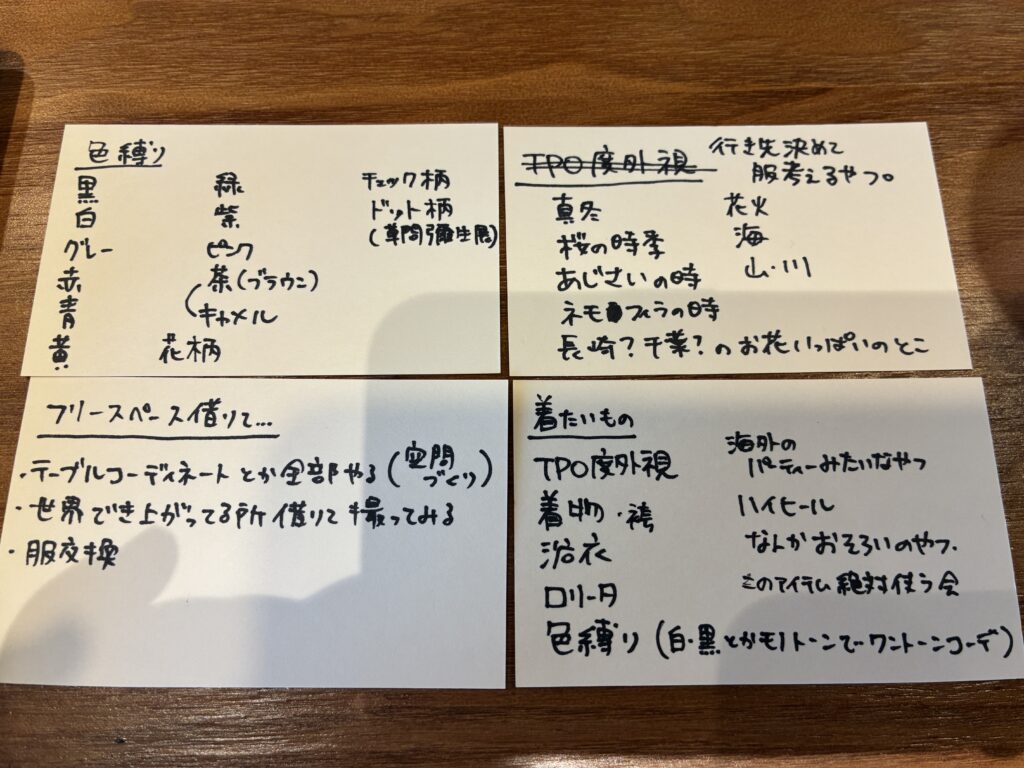 色縛り
黒
白
グレー
赤
青
黄
緑
紫
ピンク
茶(ブラウン)
キャメル
花柄
チェック柄
ドット柄
(草間彌生展)
TPO度外視
行き先決めて
服考えるやつ。
真冬
桜の時季
あじさいの時
ネモフィラの時
長崎?千葉?のお花いっぱいのとこ
花火
海
山・川
フリースペース借りて…
・テーブルコーディネートとか全部やる(空間
づくり)
・世界でき上がってる所借りて撮ってみる
・服交換
着たいもの
TPO度外視
着物・袴
浴衣
ロリータ
色縛り(白・黒とかモノトーンでワントーンコーデ)
海外の
パーティーみたいなやつ
ハイヒール
なんかおそろいのやつ。
このアイテム絶対使う会